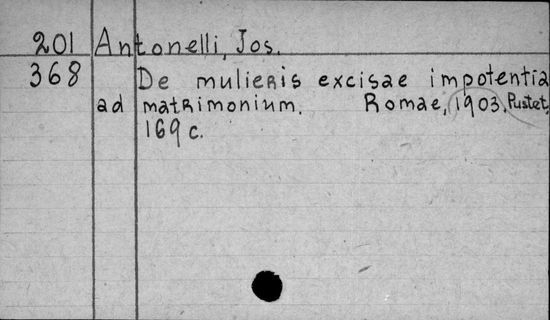 201 Antonelli, Jos.
368 De mulieris excisae impotentia
ad matrimonium. Romae, 1903, Pustet,
169 c.